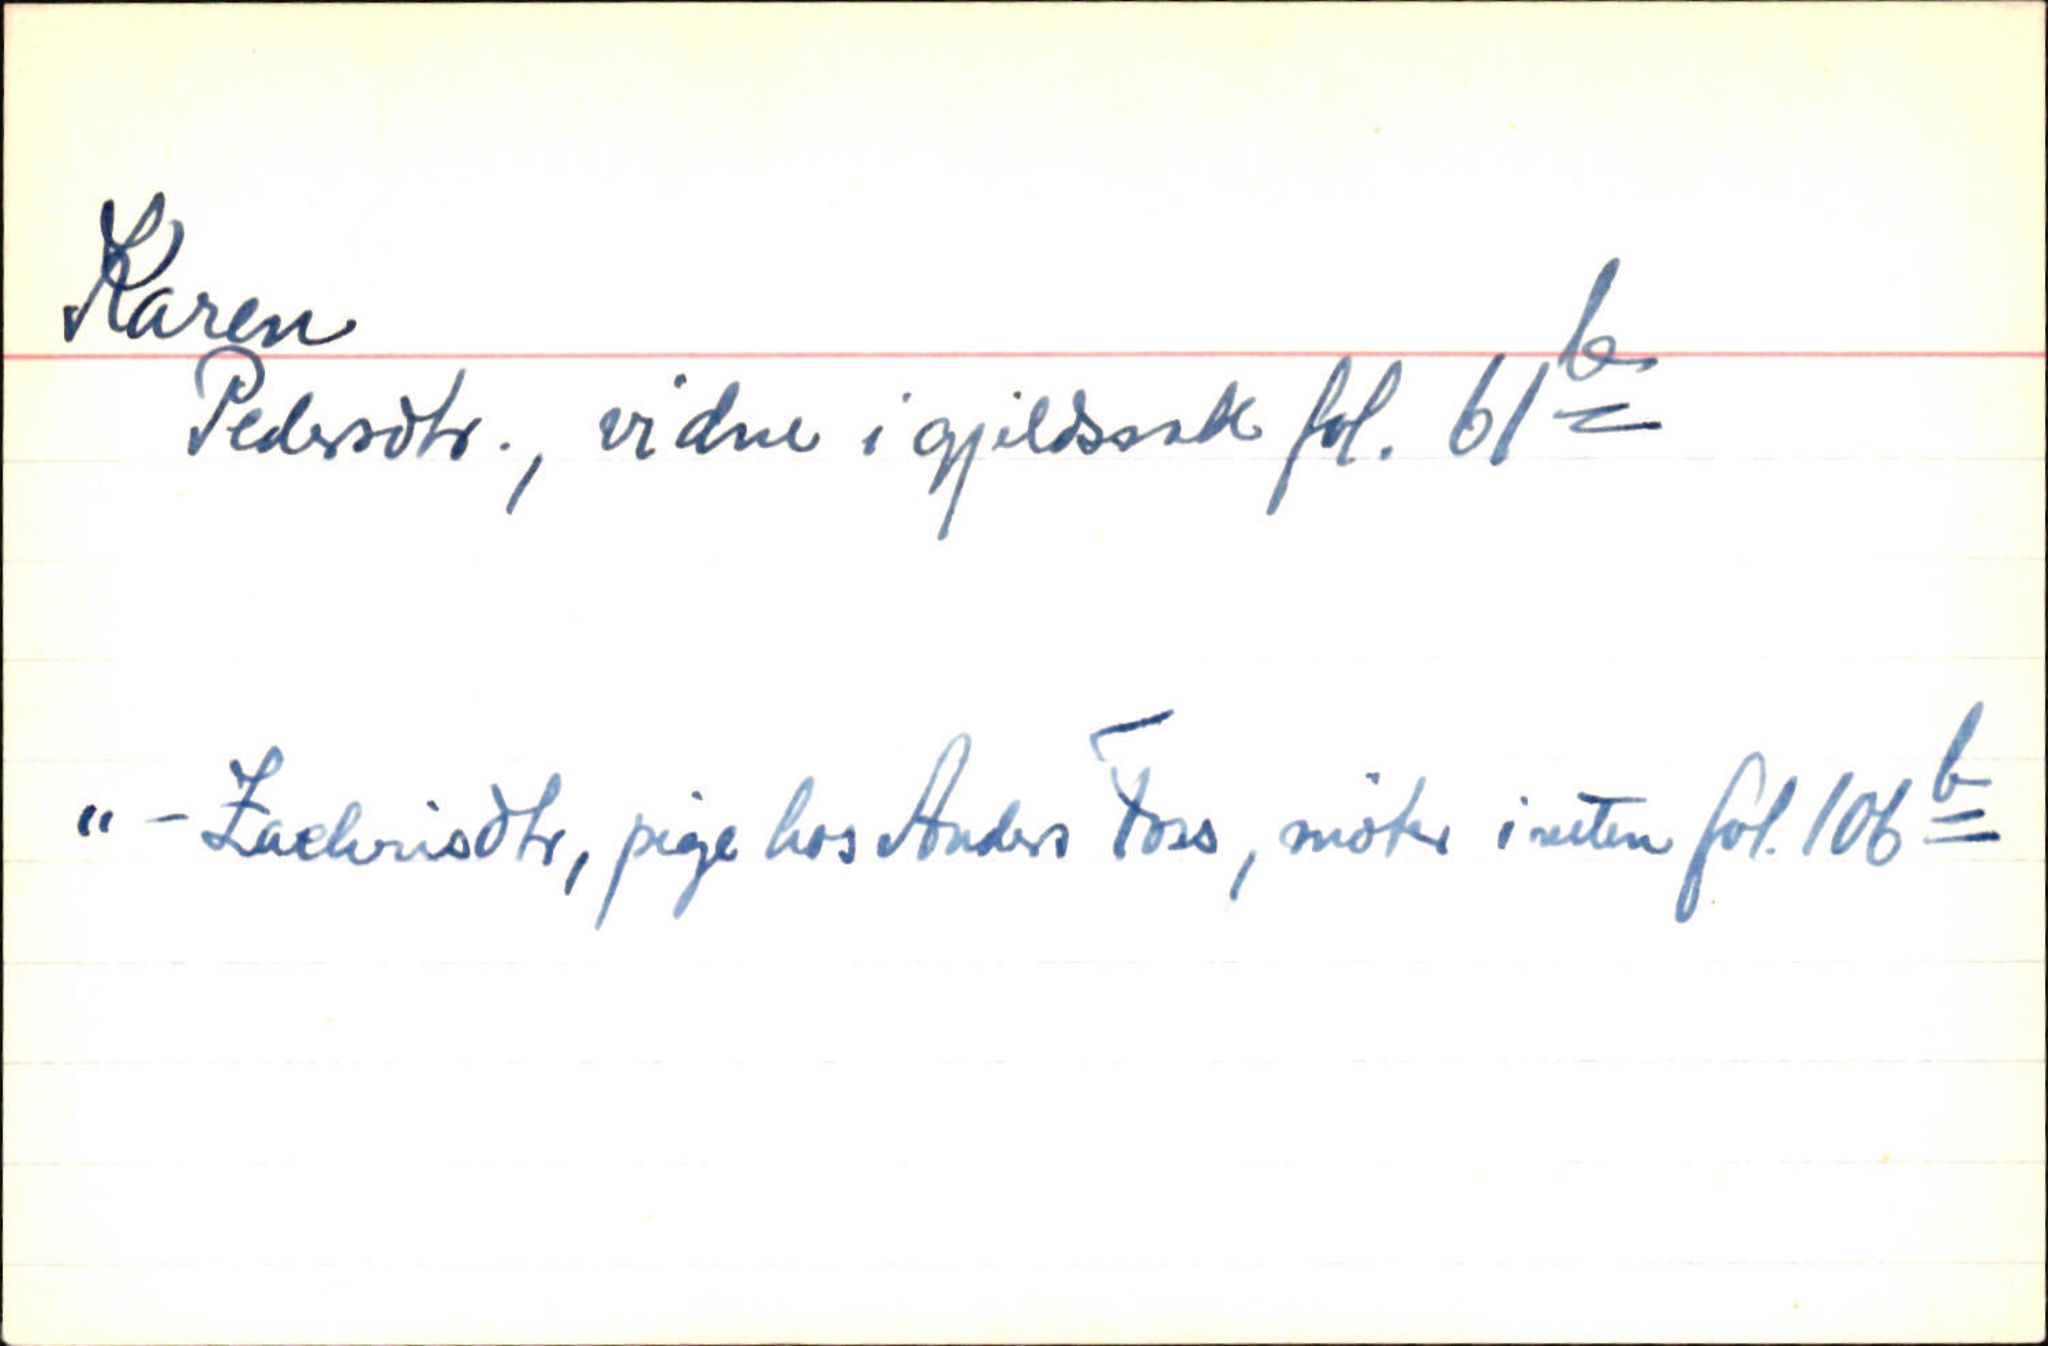 Karen
Pedersdtr., vidne i gjeldssak fol. 61 b
" - Zachrisdtr, pige hos Anders Foss, möter i retten fol. 106 b